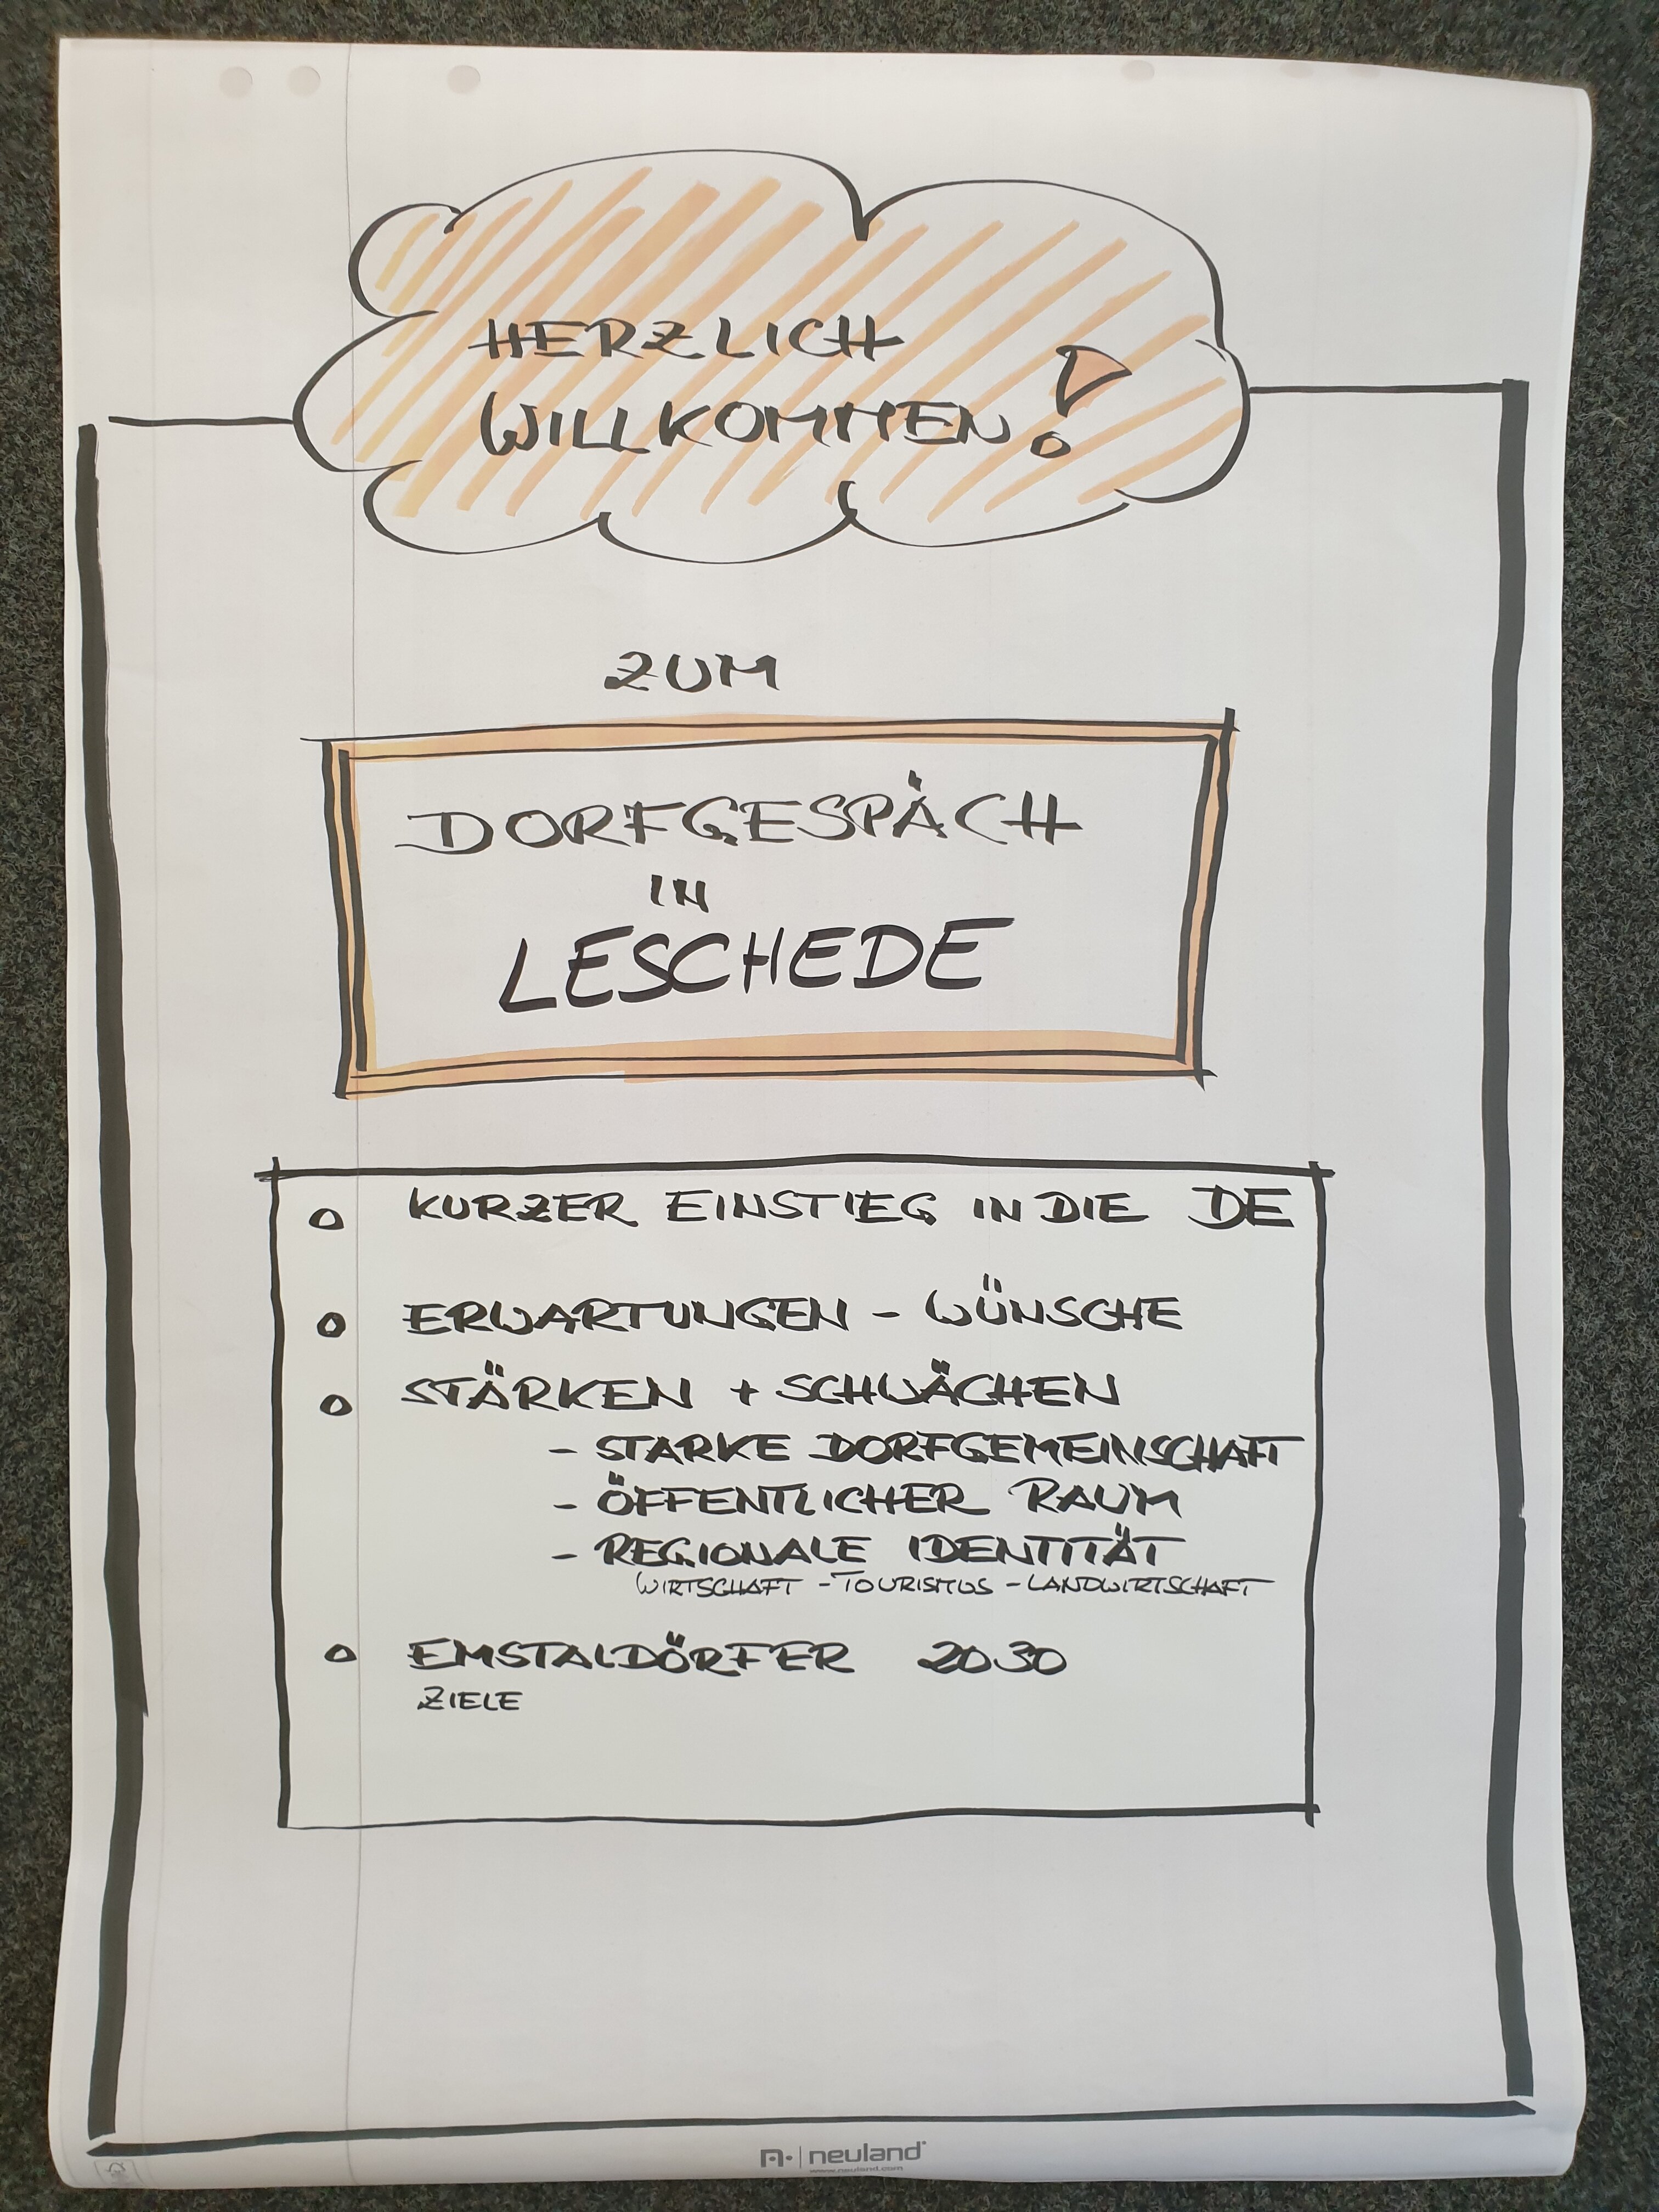 HERZLICH
WILLKOMMEN!
ZUM
DORFGESPÄCH
IN
LESCHEDE
o KURZER EINSTIEG IN DIE DE
o ERWARTUNGEN - WÜNSCHE
o STÄRKEN + SCHWÄCHEN
- STARKE DORFGEMEINSCHAFT
- ÖFFENTLICHER RAUM
- REGIONALE IDENTITÄT
WIRTSCHAFT - TOURISMUS - LANDWIRTSCHAFT
o EMSTALDÖRFER 2030
ZIELE
neuland
www.neuland.com